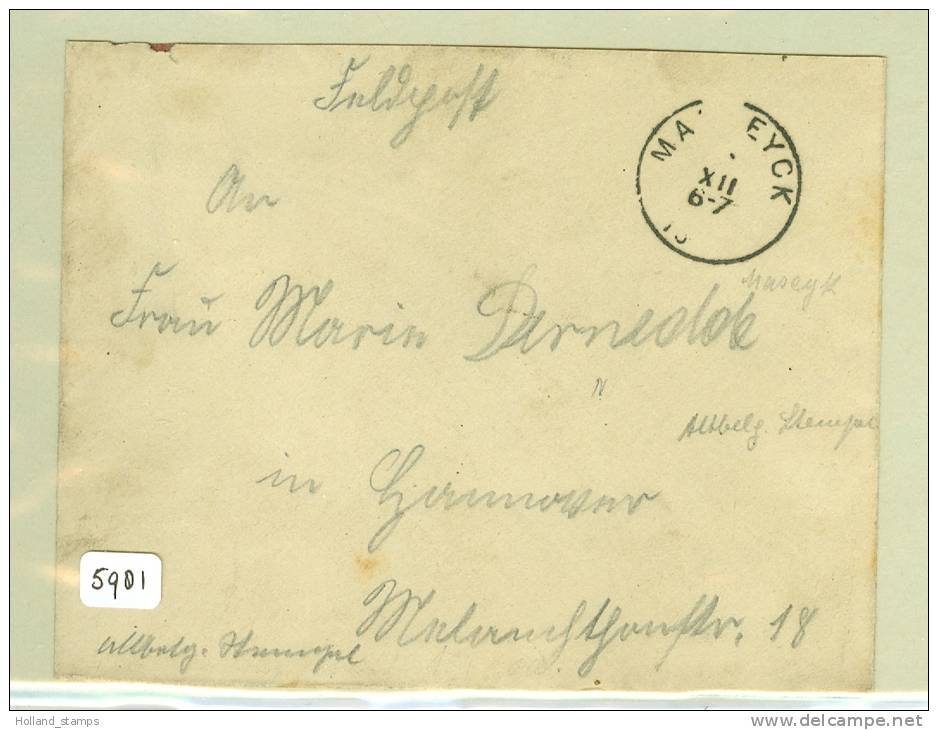 Feldpost
MA EYCK
XII
6-7
An
Maseyk
Frau Marie Dernedde
Altbelg. Stempel
in Hannover
5901
Melanchthonstr. 18
Altbelg. Stempel
Holland_stamps
www.delcampe.net